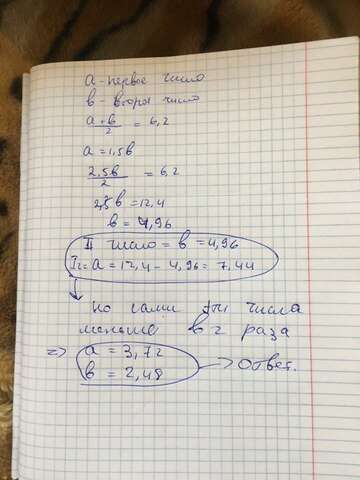 a - первое число
в - второе число
a + в / 2 = 6,2
a = 1,5в
2,5в / 2 = 6,2
2,5в = 12,4
в = 4,96
II число = в = 4,96
I = a = 12,4 - 4,96 = 7,44
но сами эти числа
меньше в 2 раза
=> a = 3,72
в = 2,48 -> Ответ.